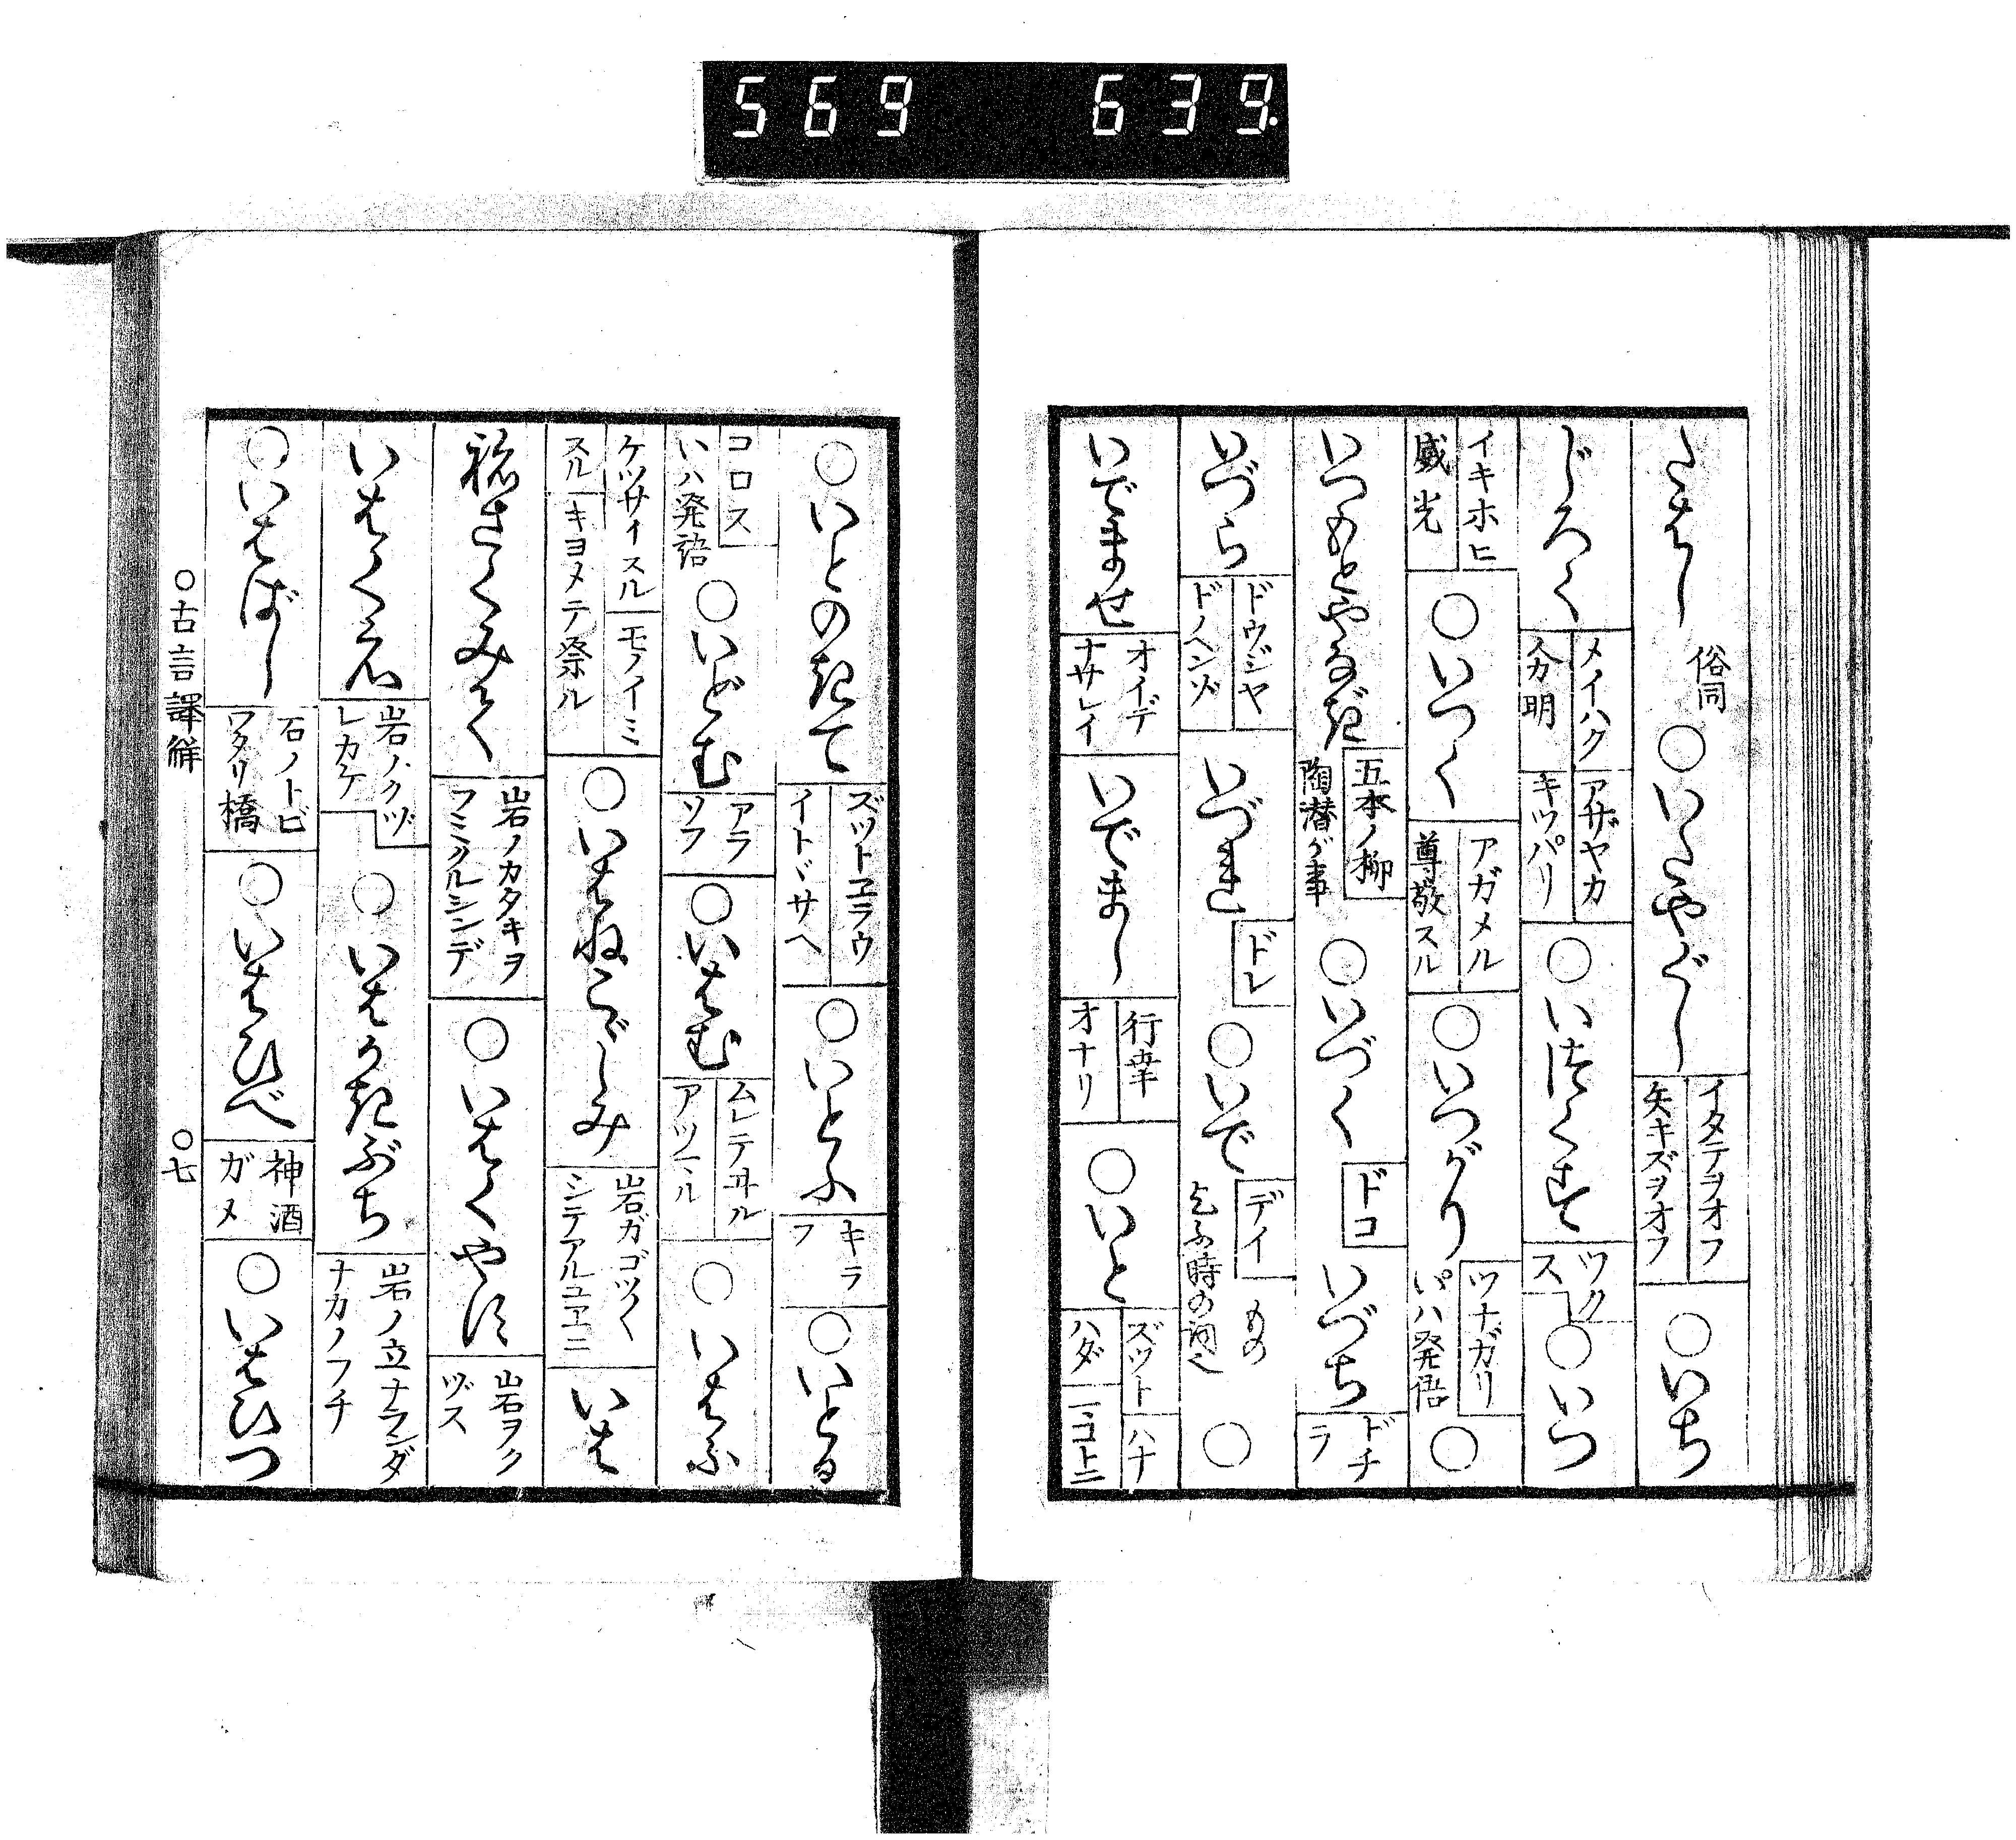 569 639.
たはし 俗同 ○いたやぐし イタテヲオフ 矢キズヲオフ ○いち
じろく メイハク 分明 アザヤカ キツパリ ○いつくす ツクス ○いつ
イキホヒ 威光 ○いつく アガメル 尊敬スル ○いつがり ツナガリ いハ発語 ○
いつもとやなぎ 五本ノ柳 陶潜が事 ○いづく ドコ いづち ドチラ
いづら ドウジヤ ドノヘンゾ いづれ ドレ ○いで デイ もの 乞ふ時の詞也 ○
いでませ オイデナサレイ いでまし 行幸 オナリ ○いと ズツト ハナハダ 一コトニ
○いとのきて ズツトヱラウ イトヾサヘ ○いとふ キラフ ○いとる
コロス いハ発語 ○いどむ アラソフ ○いはむ ムレテヰル アツマル ○いはふ
ケツサイスル モノイミスル キヨメテ祭ル ○いはねこごしみ 岩ガゴツ〱シテアルユヱニ いは
ねさくみて 岩ノカタキヲフミクルシンデ ○いはくやす 岩ヲクヅス
いはくえ 岩ノクヅレカケ ○いはかきぶち 岩ノ立ナランダナカノフチ
○いはばし 石ノトビワタリ橋 ○いはひべ 神酒ガメ ○いはひつ
○古言譯解 ○七